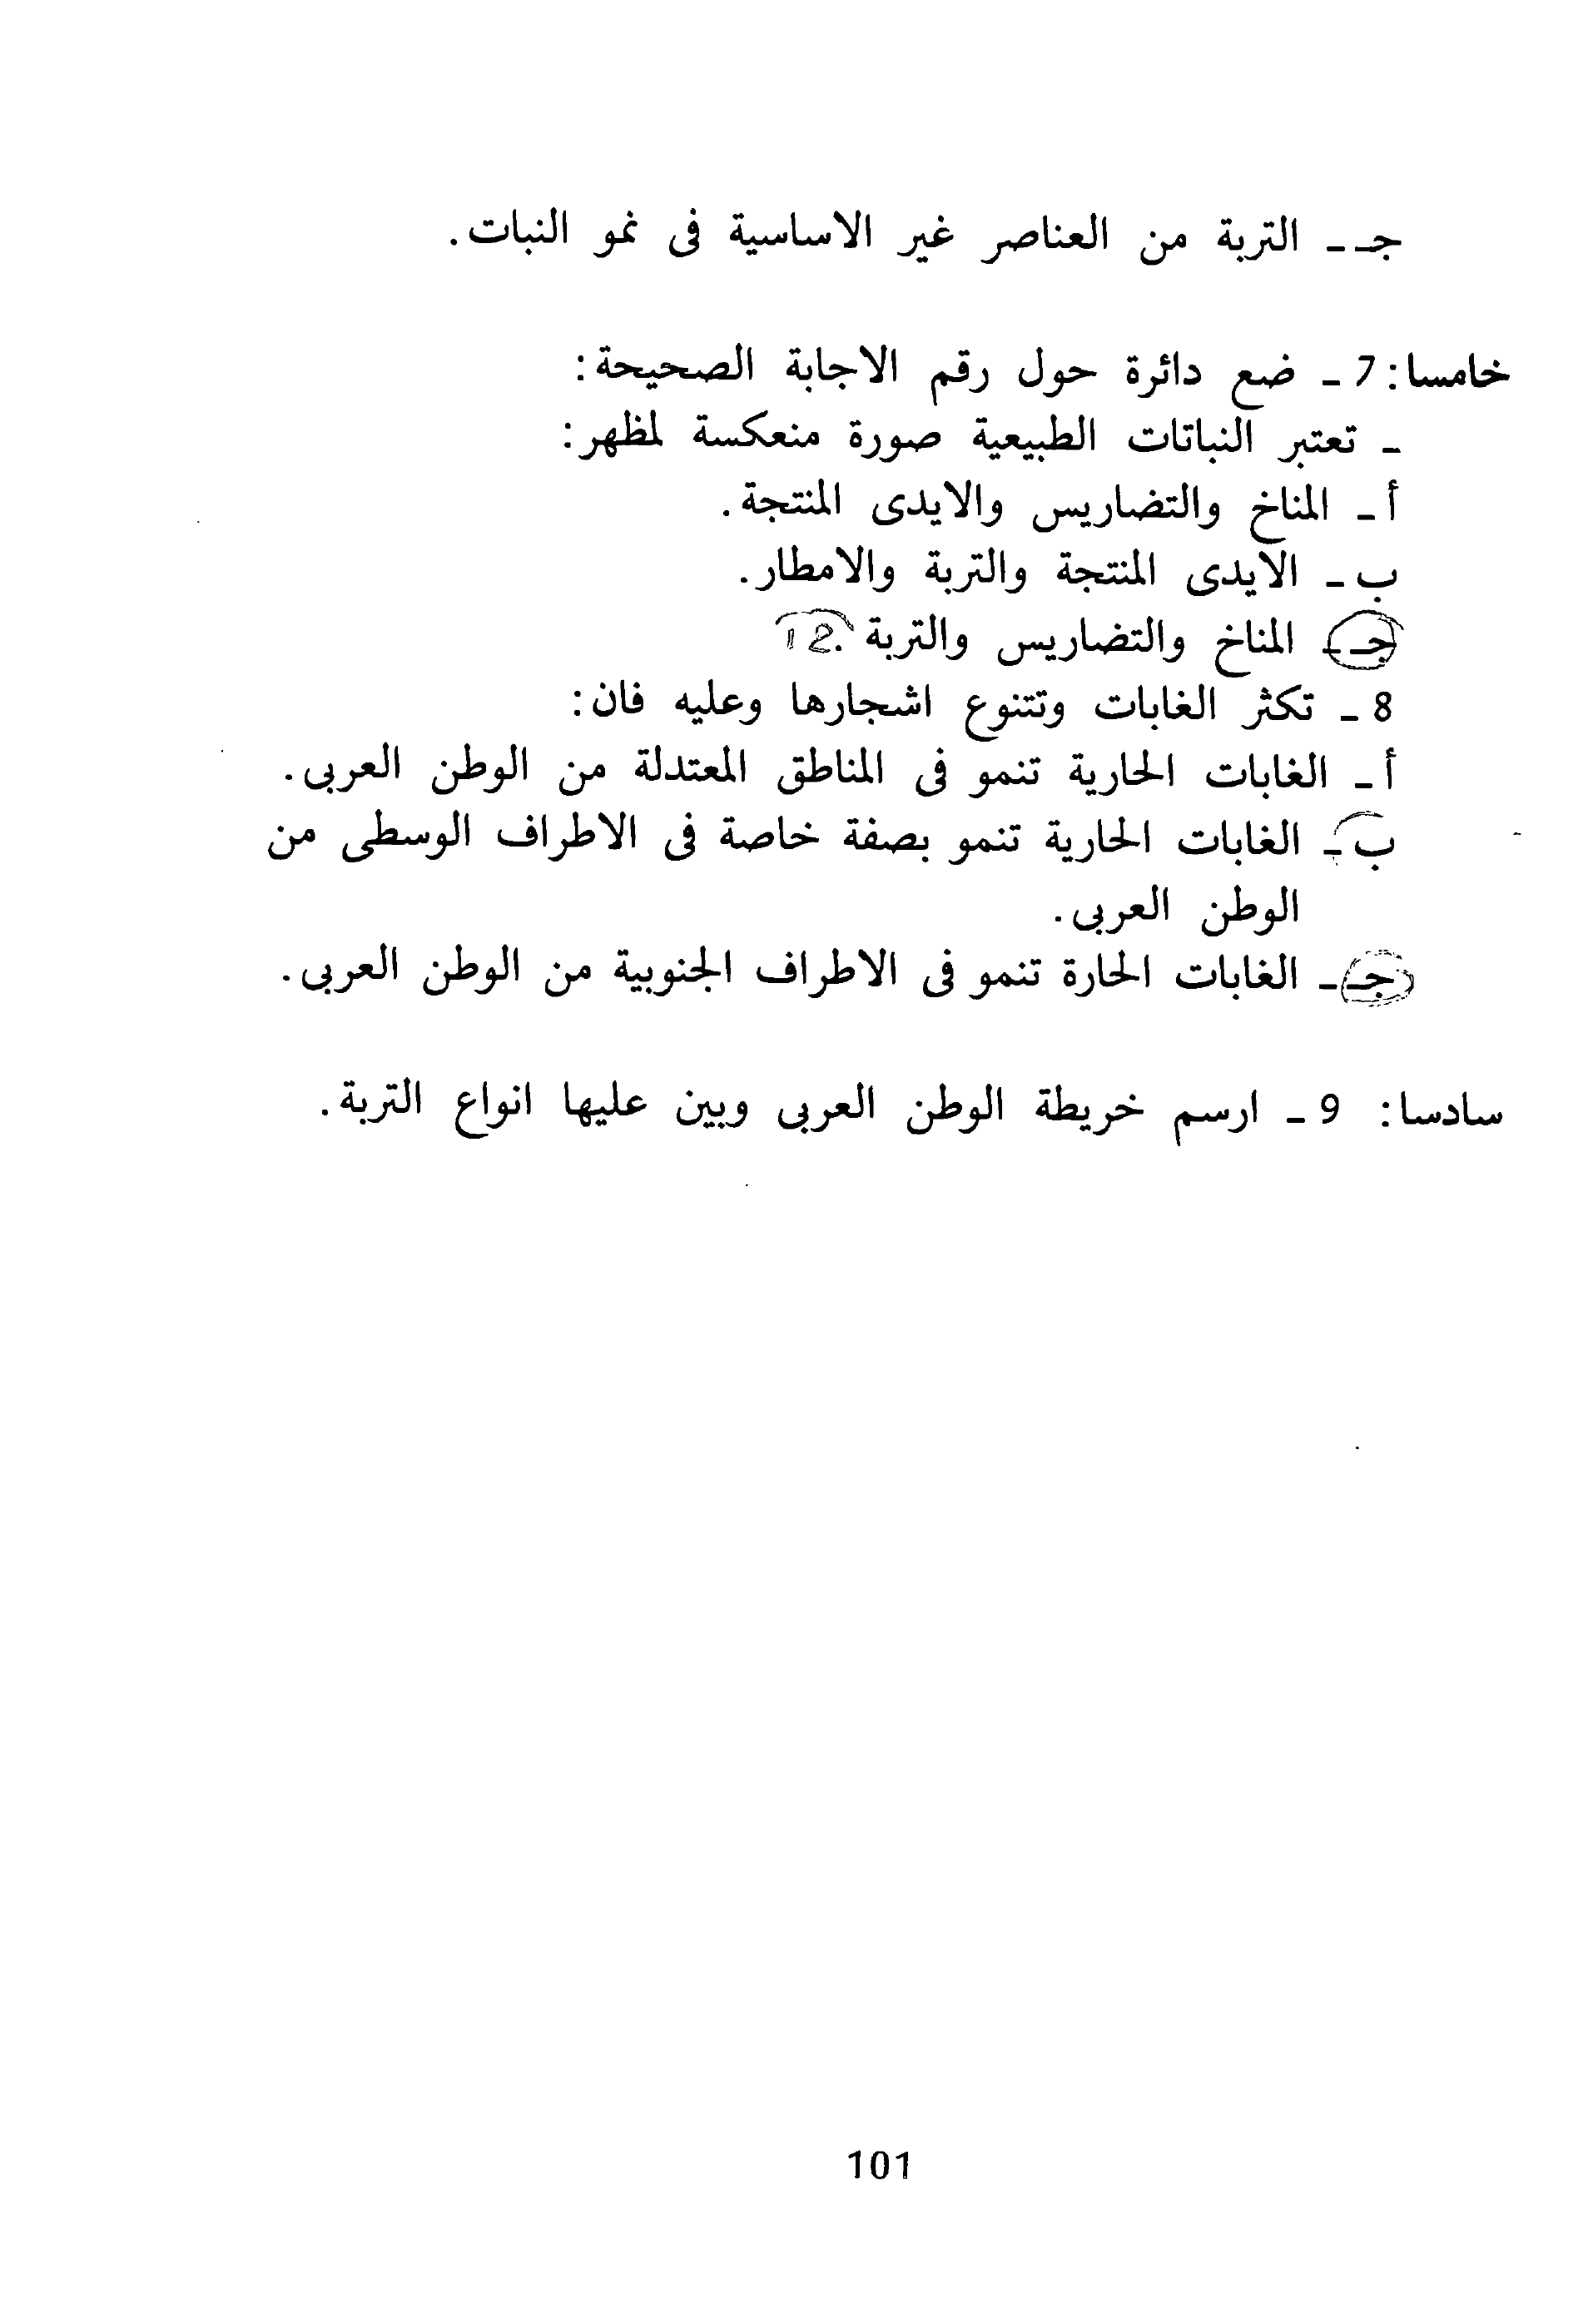 جـ ـ التربة من العناصر غير الاساسية فى نمو النبات.
خامسا: 7 ـ ضع دائرة حول رقم الاجابة الصحيحة:
ـ تعتبر النباتات الطبيعية صورة منعكسة لمظهر:
أ ـ المناخ والتضاريس والايدى المنتجة.
ب ـ الايدى المنتجة والتربة والامطار.
جـ ـ المناخ والتضاريس والتربة.
8 ـ تكثر الغابات وتتنوع اشجارها وعليه فان:
أ ـ الغابات الحارية تنمو فى المناطق المعتدلة من الوطن العربى.
ب ـ الغابات الحارية تنمو بصفة خاصة فى الاطراف الوسطى من
الوطن العربى.
جـ ـ الغابات الحارة تنمو فى الاطراف الجنوبية من الوطن العربى.
سادسا: 9 ـ ارسم خريطة الوطن العربى وبين عليها انواع التربة.
101